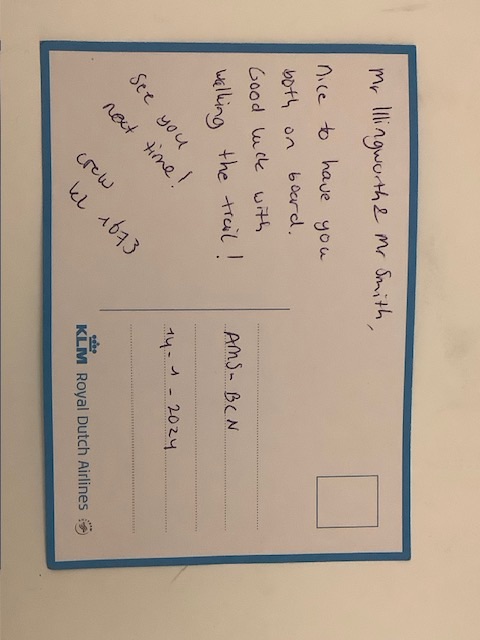 Mr Illingworth & Mr Smith,
Nice to have you
both on board.
Good luck with
walking the trail!
See you
next time!
crew
kl 1673
AMS-BCN
14-1-2024
KLM Royal Dutch Airlines